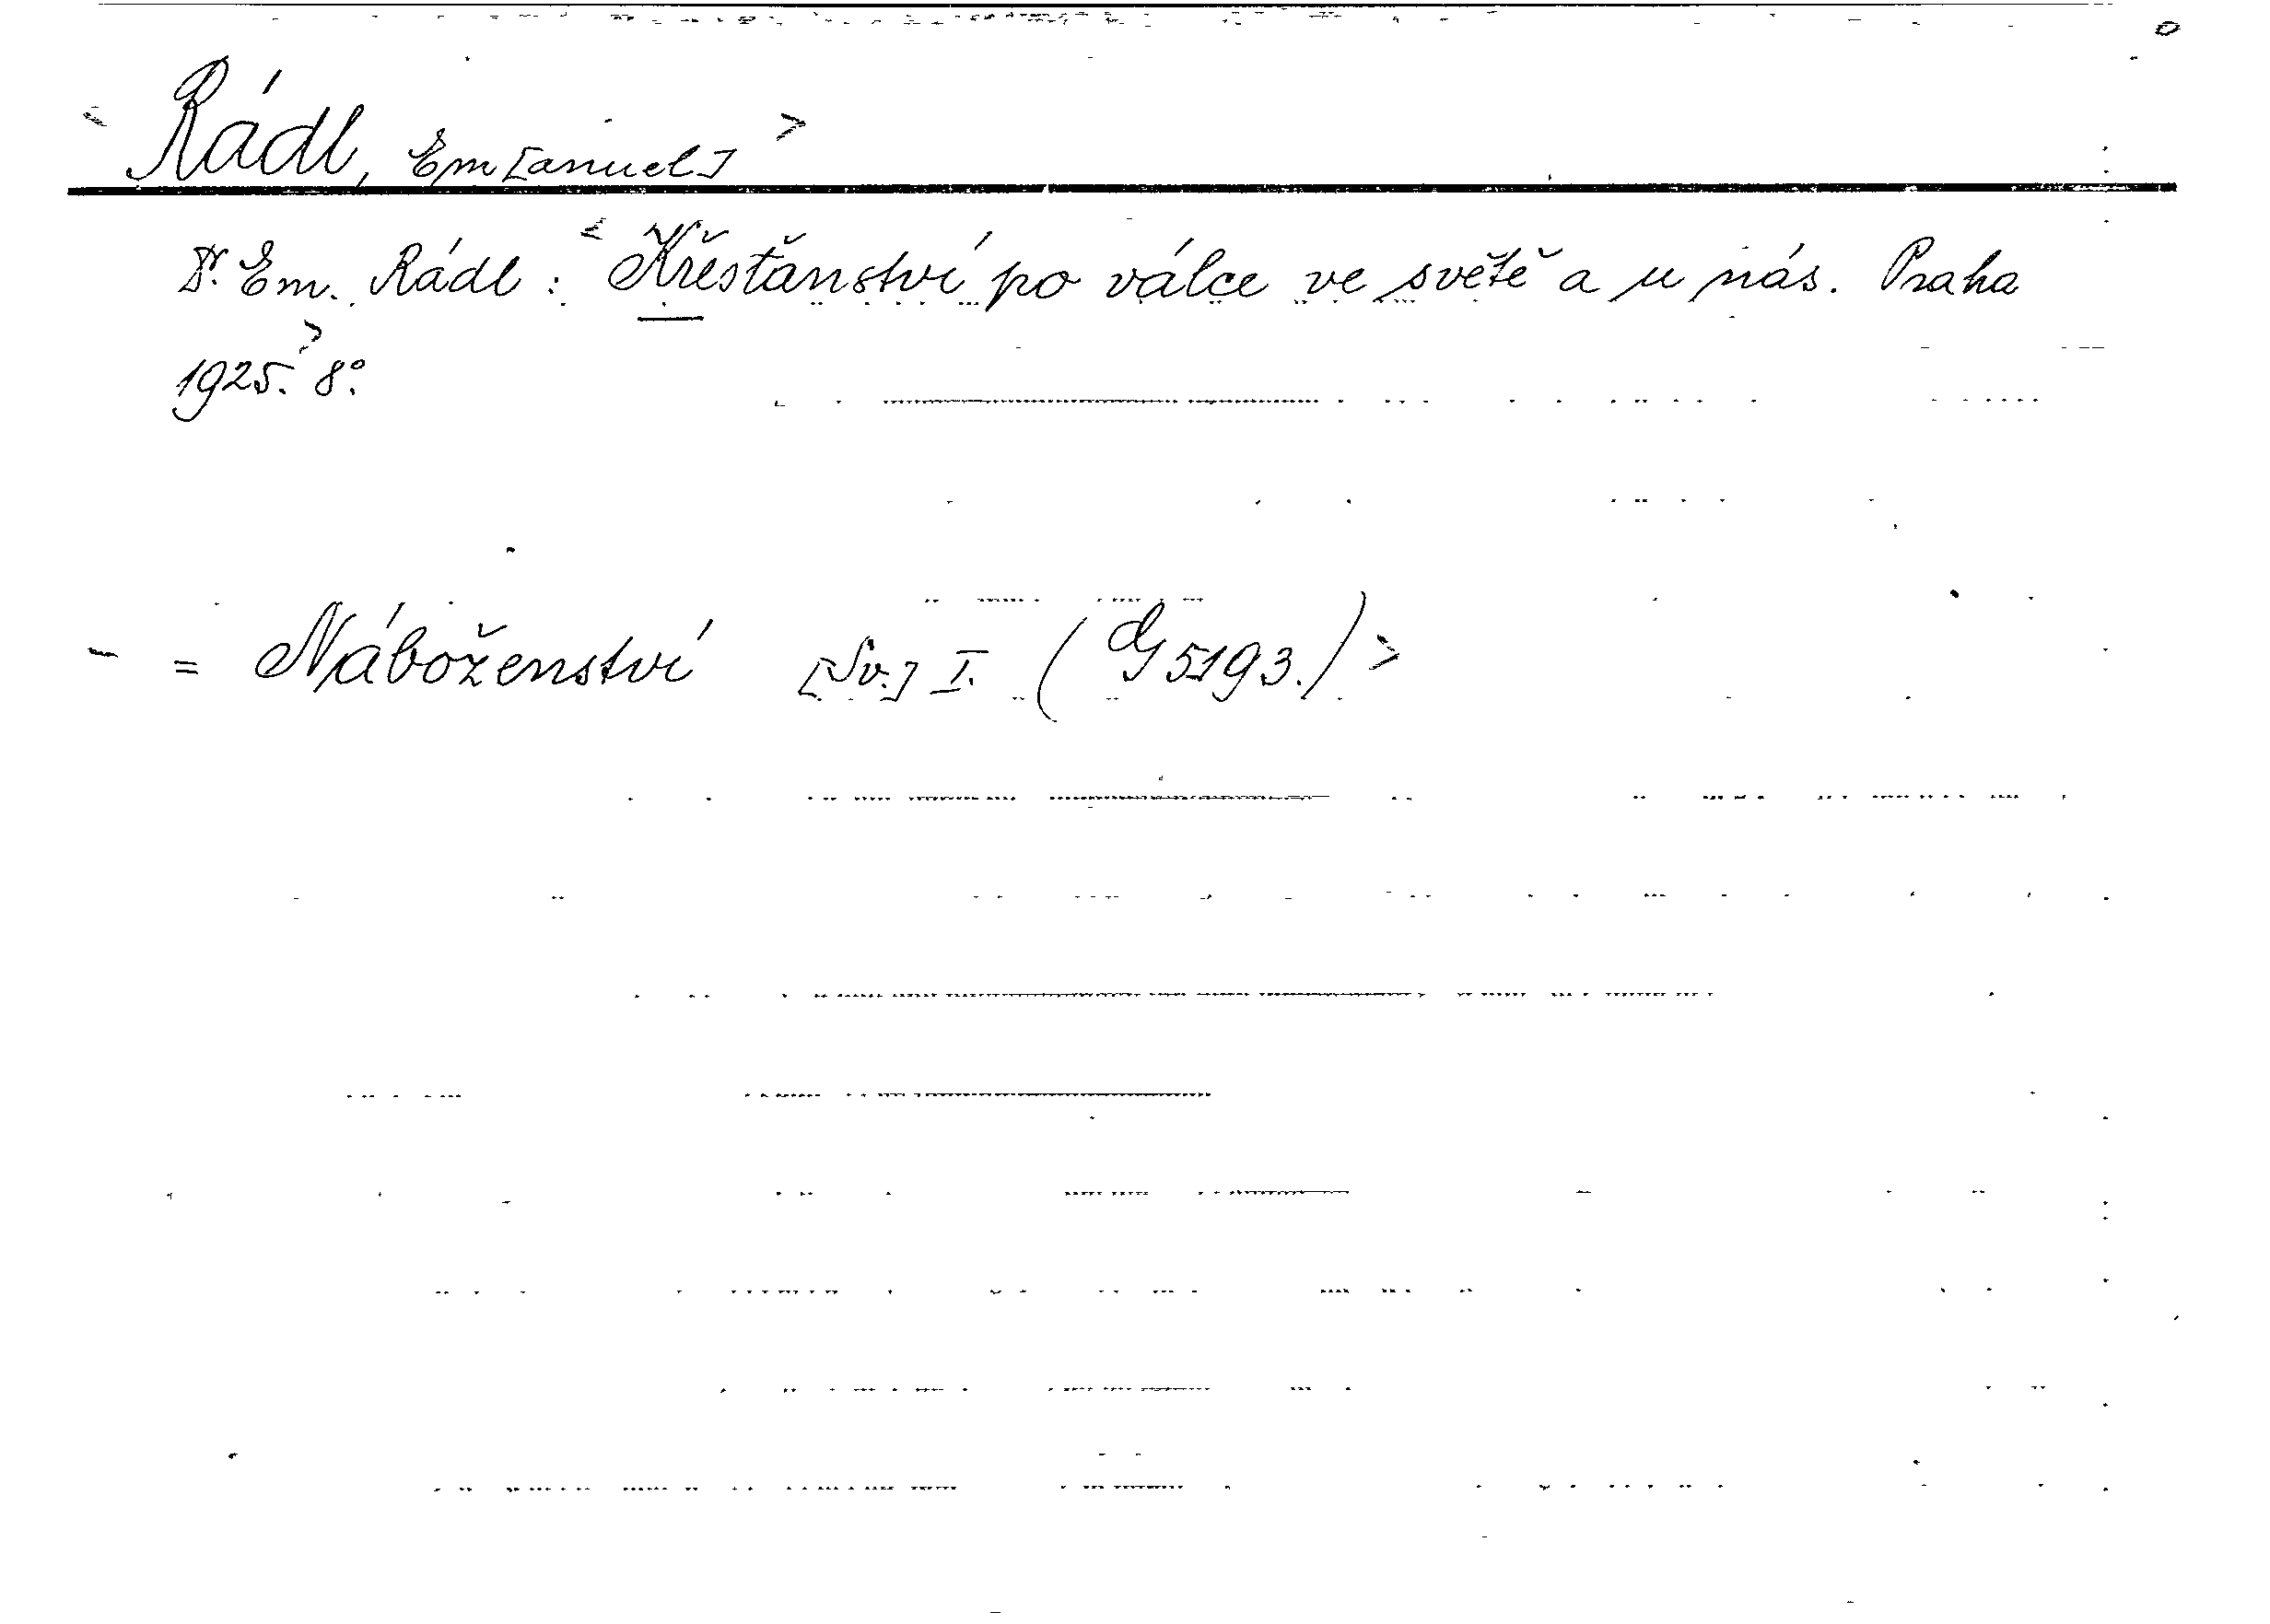 < Rádl, Em[anuel] >
Dr. Em. Rádl: < Křesťanství po válce ve světě a u nás. Praha
1925. > 8°.
- = Náboženství [Sv.] I. (G 5193.) >